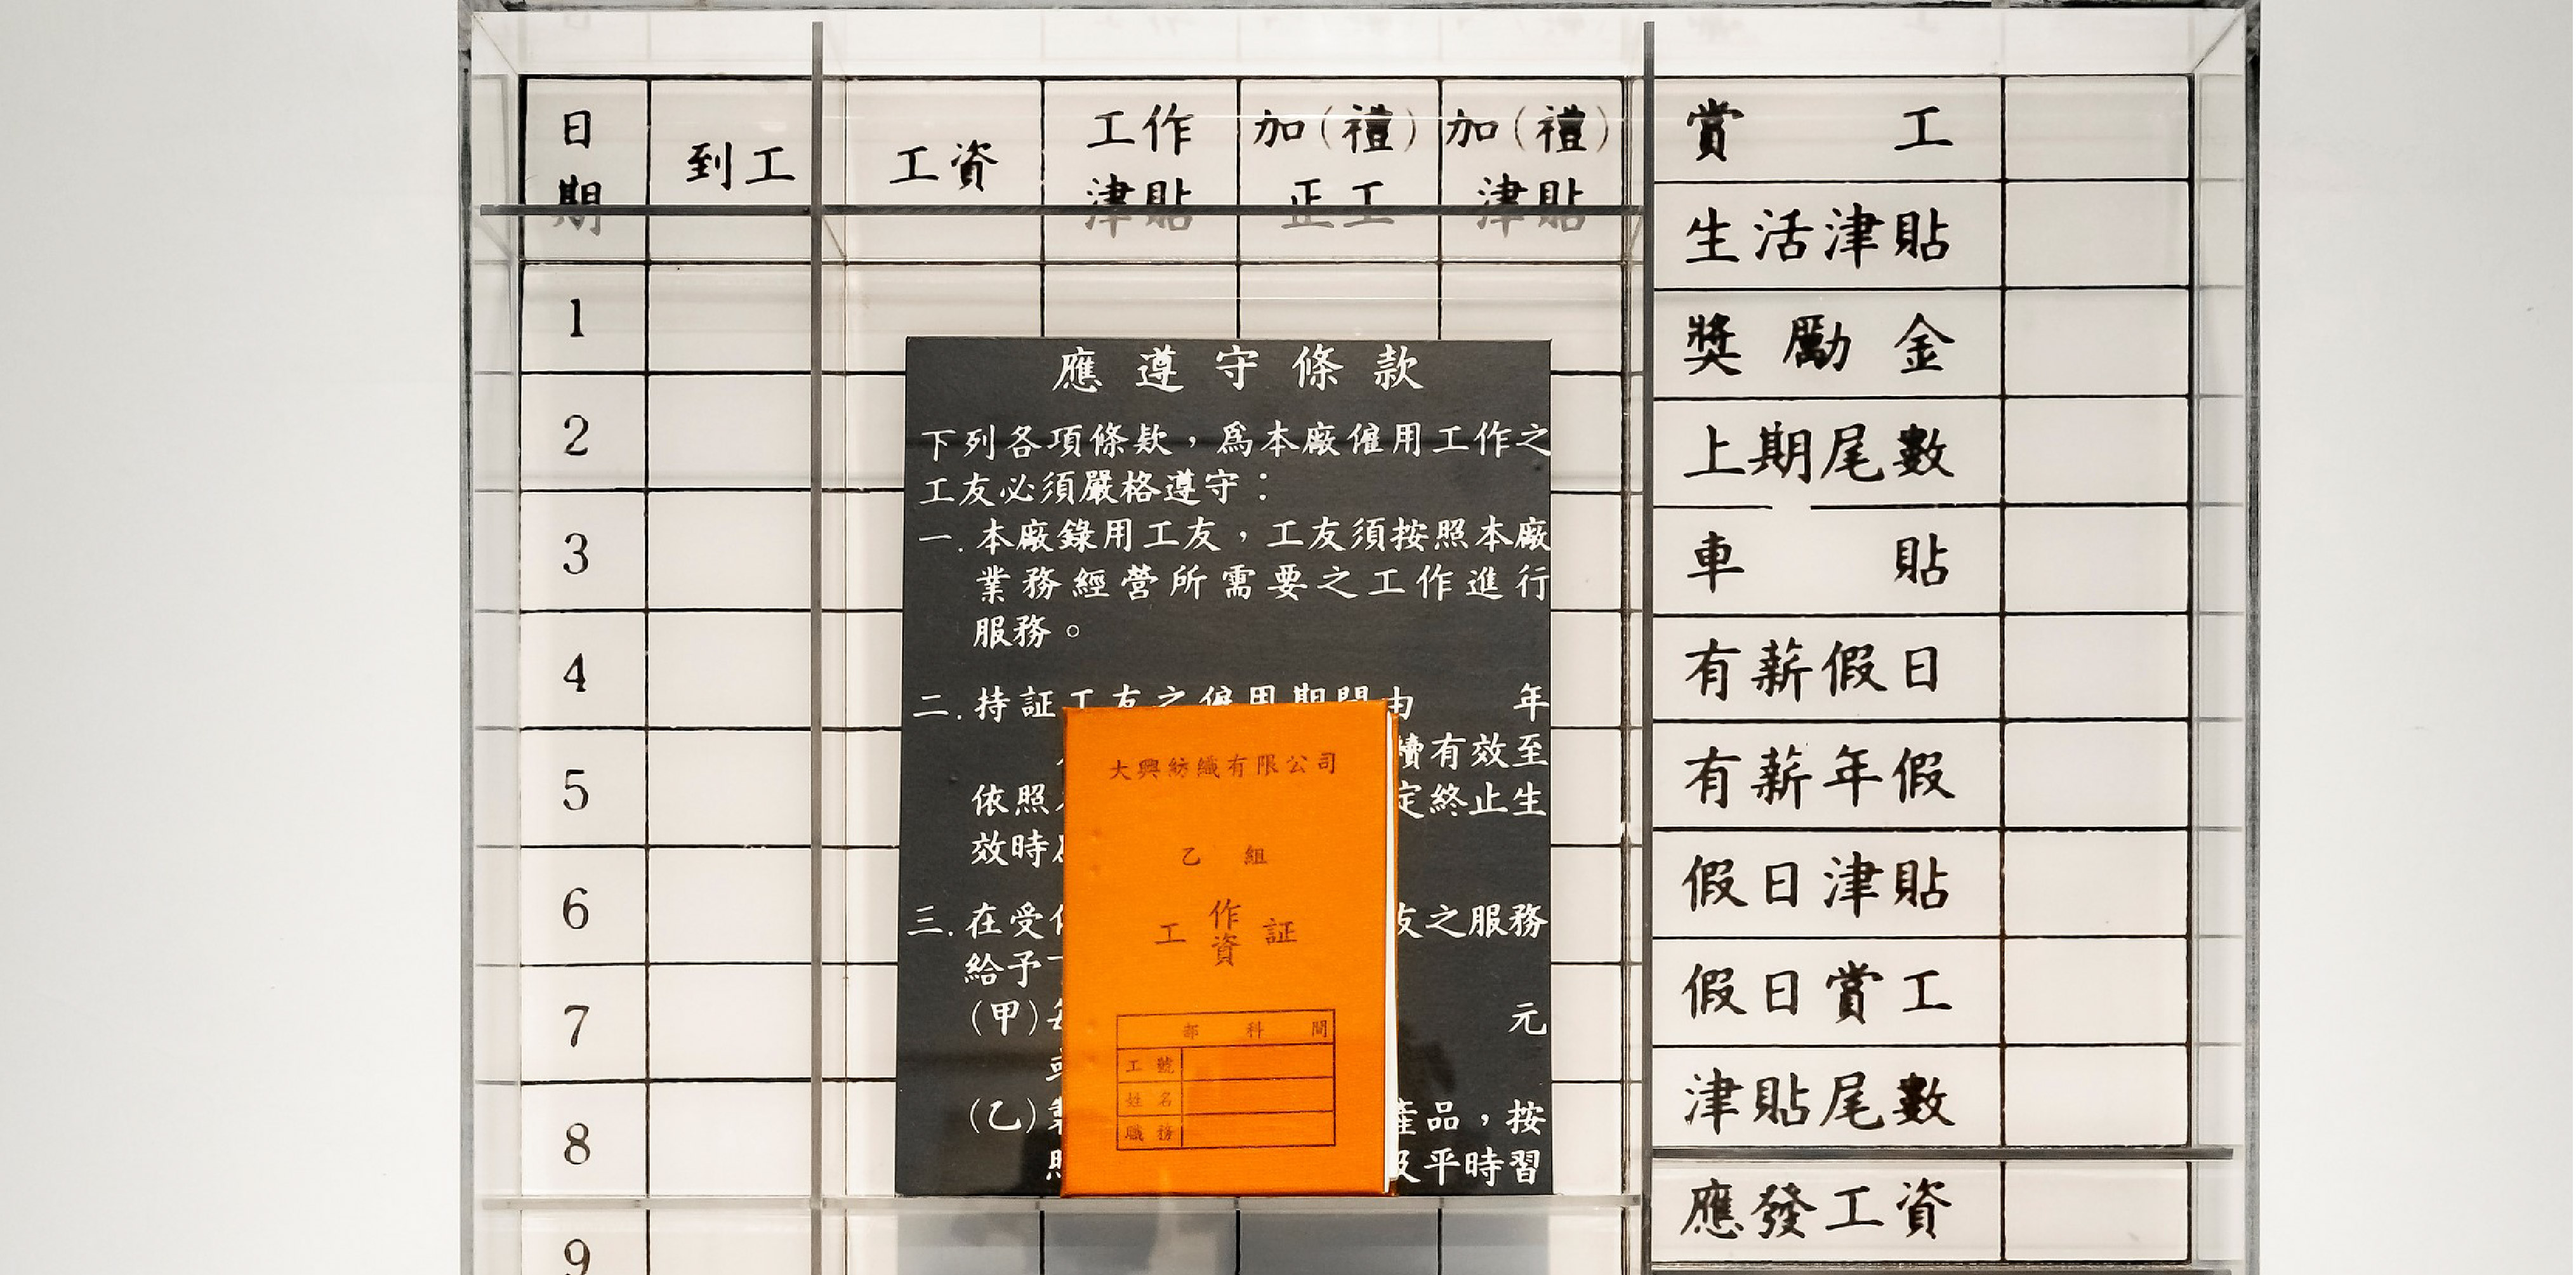 日期
到工
工資
工作津貼
加(禮)正工
加(禮)津貼
1
2
3
4
5
6
7
8
9
應遵守條款
下列各項條欵，爲本廠僱用工作之
工友必須嚴格遵守：
一.本廠錄用工友，工友須按照本廠
業務經營所需要之工作進行
服務。
二.持証工友之僱用期間由 年
續有效至
依照 定終止生
效時
三.在受 友之服務
給予
(甲) 元
(乙) 產品，按
照 及平時習
大興紡織有限公司
乙組
工作資証
部 科 間
工號
姓名
職務
賞工
生活津貼
獎勵金
上期尾數
車貼
有薪假日
有薪年假
假日津貼
假日賞工
津貼尾數
應發工資